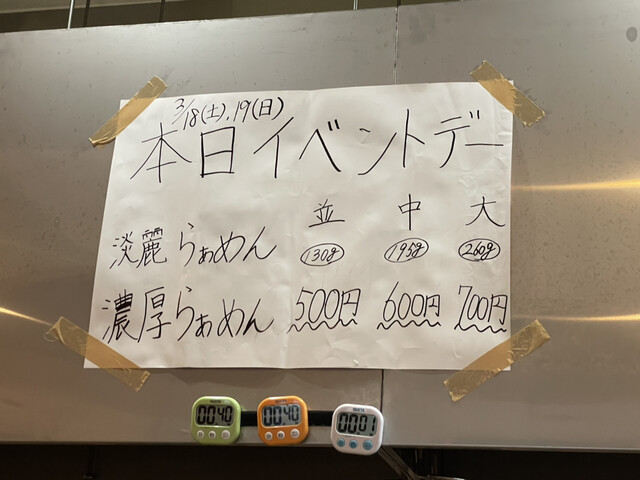 3/18(土),19(日)
本日イベントデー
並 中 大
淡麗らぁめん 130g 195g 260g
濃厚らぁめん 500円 600円 700円
00:40 00:40 00:01